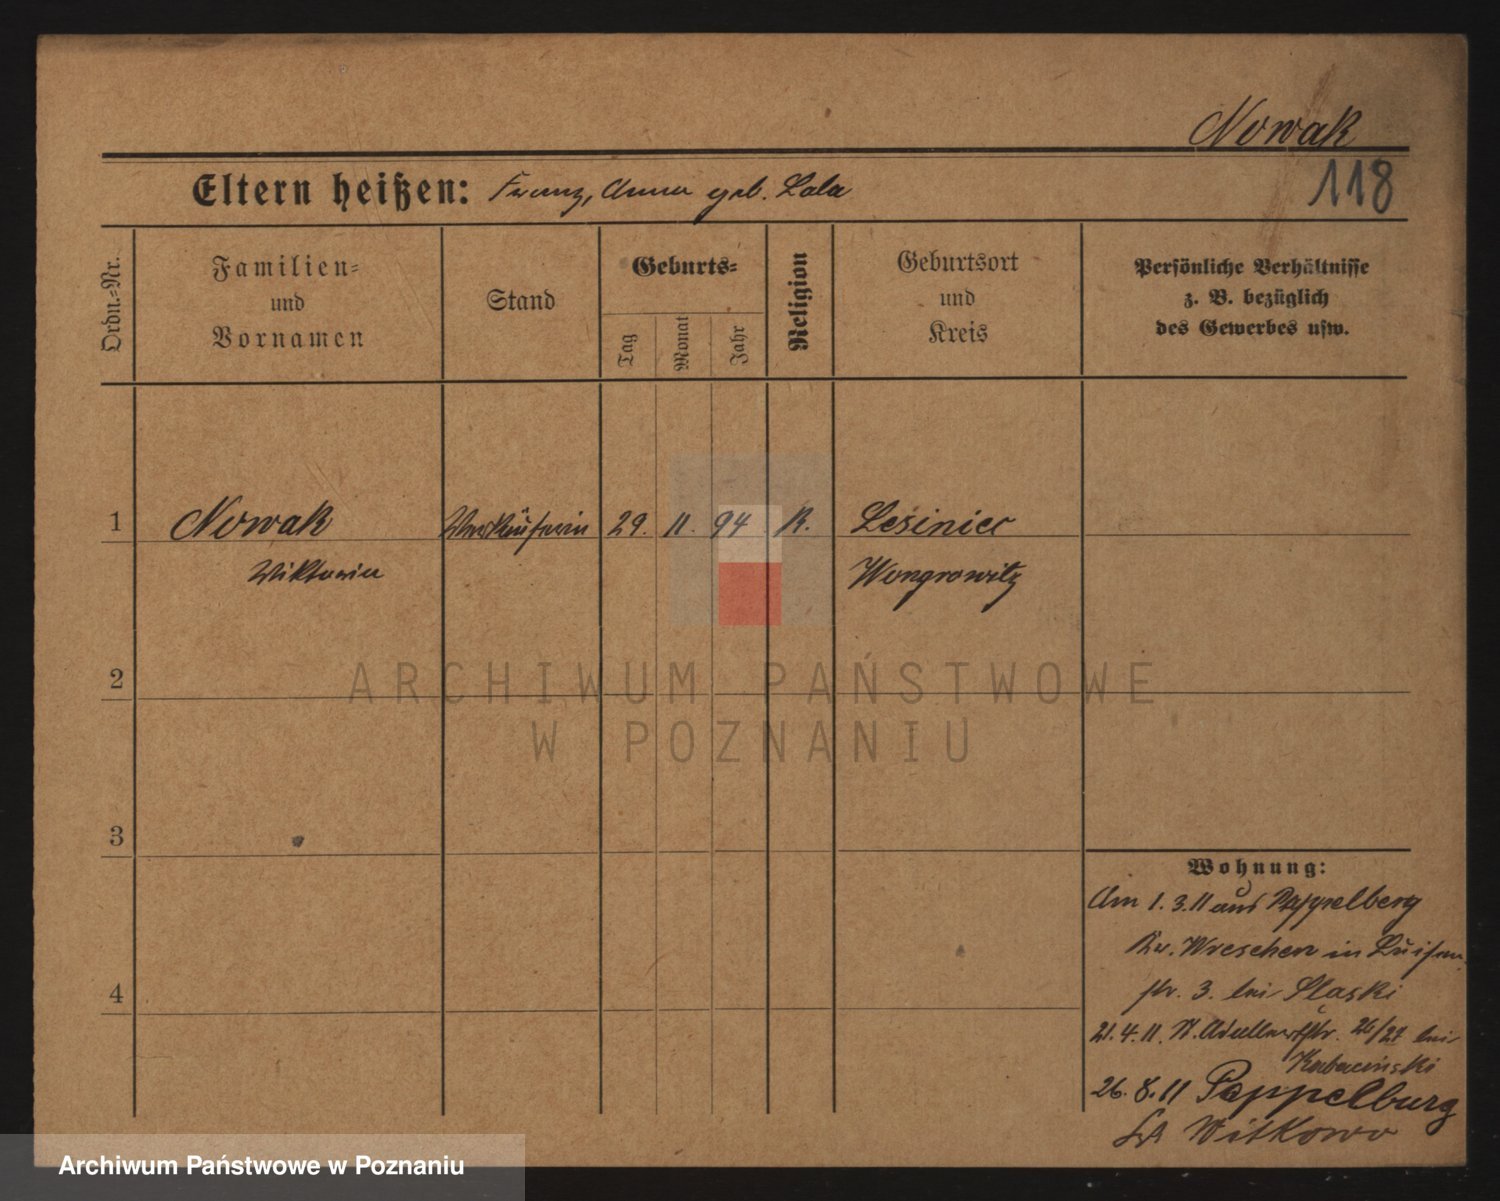 Nowak
118
Eltern heißen: Franz, Anna geb. Lala
Ordn.-Nr.
Familien-
und
Vornamen
Stand
Geburts-
Tag
Monat
Jahr
Religion
Geburtsort
und
Kreis
Persönliche Verhältnisse
z. B. bezüglich
des Gewerbes usw.
1 Nowak Verkäuferin 29. 11. 94 K. Leśiniec
Wiktoria Wongrowitz
ARCHIWUM PAŃSTWOWE
W POZNANIU
2
3
4
Wohnung:
Am 1.3.11 aus Pappelberg
Kr. Wreschen in Luisen
str. 3. bei Slaski
21.4.11. 26/27 bei
Kubaciński
26.8.11 Pappelburg
Witkowo
Archiwum Państwowe w Poznaniu